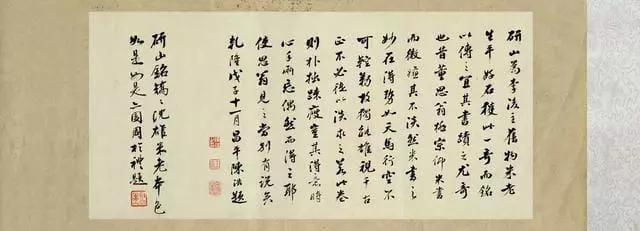 研山為李後主舊物米老
生平好石獲此一奇而銘
以傳之宜其書蹟之尤奇
也昔董思翁極宗仰米書
而微嫌其不淡然米書之
妙在得勢如天馬行空不
可控勒故獨能雄視千古
正不必徒以淡求之若此卷
則朴拙疎瘦豈其得意時
心手兩忘偶然而得之耶
使思翁見之當別有說矣
乾隆戊子十一月昌平陳浩題
研山銘沈雄米老本色
如是如是亦園周於禮題